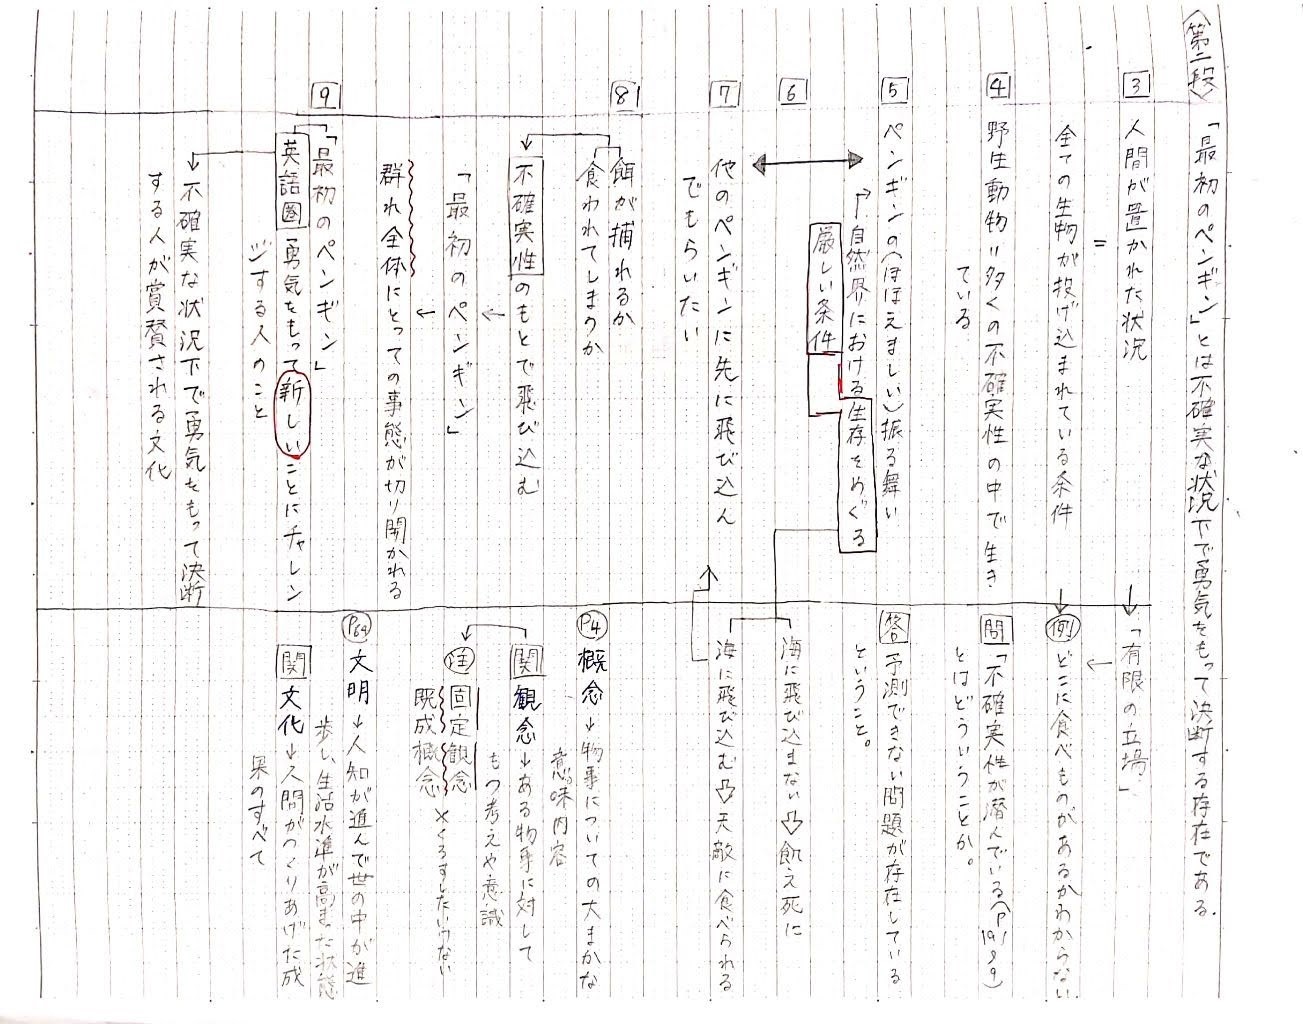 〈第二段〉
「最初のペンギン」とは不確実な状況下で勇気をもって決断する存在である.
3
人間が置かれた状況
=
全ての生物が投げ込まれている条件
4
野生動物=多くの不確実性の中で生き
ている
5
ペンギンの(ほほえましい)振る舞い
自然界における生存をめぐる
厳しい条件
6
7
他のペンギンに先に飛び込ん
でもらいたい
8
餌が捕れるか
食われてしまうか
不確実性のもとで飛び込む
「最初のペンギン」
群れ全体にとっての事態が切り開かれる
9
「最初のペンギン」
英語圏 勇気をもって新しいことにチャレン
ジする人のこと
不確実な状況下で勇気をもって決断
する人が賞賛される文化
「有限の立場」
例 どこに食べものがあるかわからない
問 「不確実性が潜んでいる」
とはどういうことか。
答 予測できない問題が存在している
ということ。
海に飛び込まない⇨飢え死に
海に飛び込む⇨天敵に食べられる
P4 概念→物事についての大まかな
意味内容
関 観念→ある物事に対して
もつ考えや意識
注 固定観念
既成概念
P64 文明→人知が進んで世の中が進
歩し、生活水準が高まった状態
関 文化→人間がつくりあげた成
果のすべて